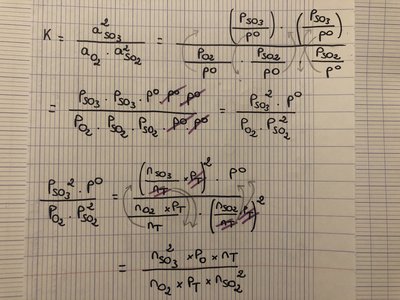 K = a²SO₃ / (aO₂ · a²SO₂) = ((PSO₃/P°) · (PSO₃/P°)) / (PO₂/P° · PSO₂/P° · PSO₂/P°)
= (PSO₃ · PSO₃ · P° · P° · P°) / (PO₂ · PSO₂ · PSO₂ · P° · P°) = (PSO₃² · P°) / (PO₂ · PSO₂²)
(PSO₃² · P°) / (PO₂ · PSO₂²) = ((nSO₃/nT × PT)² · P°) / ((nO₂ × PT)/nT · (nSO₂/nT · PT)²)
= (nSO₃² × P0 × nT) / (nO₂ × PT × nSO₂²)